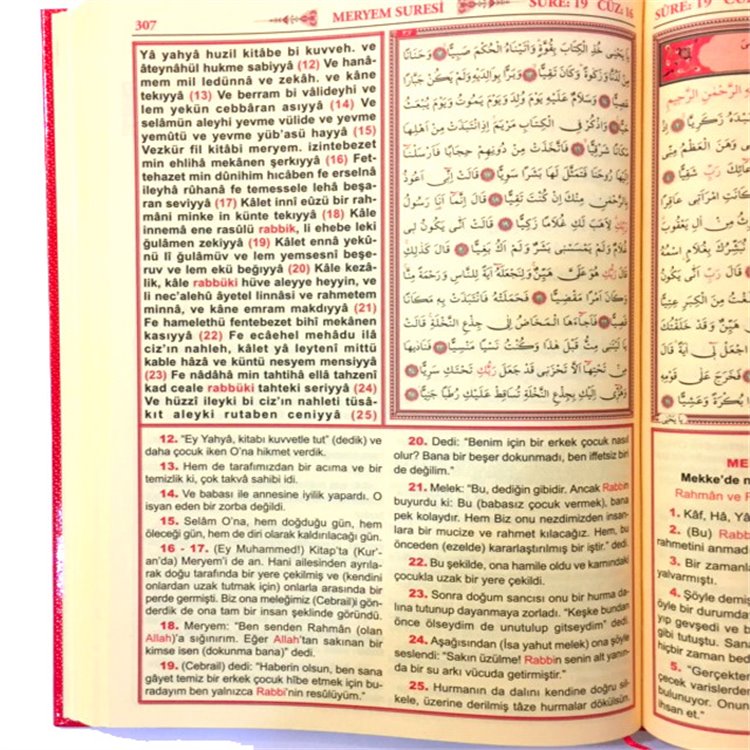 307
MERYEM SURESİ
SÛRE: 19 CÜZ: 16
Yâ yahyâ huzil kitâbe bi kuvveh. ve
âteynâhül hukme sabiyyâ (12) Ve hanâ-
mem mil ledünnâ ve zekâh. ve kâne
tekıyyâ (13) Ve berram bi vâlideyhi ve
lem yekün cebbâran asıyyâ (14) Ve
selâmün aleyhi yevme vülide ve yevme
yemûtü ve yevme yüb'asü hayyâ (15)
Vezkür fil kitâbi meryem. izintebezet
min ehlihâ mekânen şerkıyyâ (16) Fet-
tehazet min dûnihim hıcâben fe erselnâ
ileyhâ rûhanâ fe temessele lehâ beşa-
ran seviyyâ (17) Kâlet innî eûzü bir rah-
mâni minke in künte tekıyyâ (18) Kâle
innemâ ene rasûlü rabbik, li ehebe leki
ğulâmen zekiyyâ (19) Kâlet ennâ yekû-
nü lî ğulâmüv ve lem yemsesnî beşe-
ruv ve lem ekü beğıyyâ (20) Kâle kezâ-
lik, kâle rabbüki hüve aleyye heyyin, ve
li nec'alehû âyetel linnâsi ve rahmetem
minnâ, ve kâne emram makdıyyâ (21)
Fe hamelethü fentebezet bihî mekânen
kasıyyâ (22) Fe ecâehel mehâdu ilâ
ciz'ın nahleh, kâlet yâ leytenî mittü
kable hâzâ ve küntü nesyem mensiyyâ
(23) Fe nâdâhâ min tahtihâ ellâ tahzenî
kad ceale rabbüki tahteki seriyyâ (24)
Ve hüzzî ileyki bi ciz'ın nahleti tüsâ-
kıt aleyki rutaben ceniyyâ (25)
يَا يَحْيٰى خُذِ الْكِتَابَ بِقُوَّةٍ وَاٰتَيْنَاهُ الْحُكْمَ صَبِيًّا ﴿١٢﴾ وَحَنَانًا
مِنْ لَدُنَّا وَزَكٰوةً وَكَانَ تَقِيًّا ﴿١٣﴾ وَبَرًّا بِوَالِدَيْهِ وَلَمْ يَكُنْ جَبَّارًا
عَصِيًّا ﴿١٤﴾ وَسَلَامٌ عَلَيْهِ يَوْمَ وُلِدَ وَيَوْمَ يَمُوتُ وَيَوْمَ يُبْعَثُ
حَيًّا ﴿١٥﴾ وَاذْكُرْ فِي الْكِتَابِ مَرْيَمَ اِذِ انْتَبَذَتْ مِنْ اَهْلِهَا
مَكَانًا شَرْقِيًّا ﴿١٦﴾ فَاتَّخَذَتْ مِنْ دُونِهِمْ حِجَابًا فَاَرْسَلْنَا
اِلَيْهَا رُوحَنَا فَتَمَثَّلَ لَهَا بَشَرًا سَوِيًّا ﴿١٧﴾ قَالَتْ اِنّٖي اَعُوذُ
بِالرَّحْمٰنِ مِنْكَ اِنْ كُنْتَ تَقِيًّا ﴿١٨﴾ قَالَ اِنَّمَا اَنَا رَسُولُ
رَبِّكِ لِاَهَبَ لَكِ غُلَامًا زَكِيًّا ﴿١٩﴾ قَالَتْ اَنّٰى يَكُونُ لٖي
غُلَامٌ وَلَمْ يَمْسَسْنٖي بَشَرٌ وَلَمْ اَكُ بَغِيًّا ﴿٢٠﴾ قَالَ كَذٰلِكِ
قَالَ رَبُّكِ هُوَ عَلَيَّ هَيِّنٌ وَلِنَجْعَلَهُ اٰيَةً لِلنَّاسِ وَرَحْمَةً مِنَّا
وَكَانَ اَمْرًا مَقْضِيًّا ﴿٢١﴾ فَحَمَلَتْهُ فَانْتَبَذَتْ بِهٖ مَكَانًا
قَصِيًّا ﴿٢٢﴾ فَاَجَاءَهَا الْمَخَاضُ اِلٰى جِذْعِ النَّخْلَةِ قَالَتْ
يَا لَيْتَنٖي مِتُّ قَبْلَ هٰذَا وَكُنْتُ نَسْيًا مَنْسِيًّا ﴿٢٣﴾ فَنَادٰيهَا
مِنْ تَحْتِهَا اَلَّا تَحْزَنٖي قَدْ جَعَلَ رَبُّكِ تَحْتَكِ سَرِيًّا ﴿٢٤﴾
وَهُزّٖي اِلَيْكِ بِجِذْعِ النَّخْلَةِ تُسَاقِطْ عَلَيْكِ رُطَبًا جَنِيًّا ﴿٢٥﴾
12. "Ey Yahyâ, kitâbı kuvvetle tut" (dedik) ve
daha çocuk iken O'na hikmet verdik.
13. Hem de tarafımızdan bir acıma ve bir
temizlik ki, çok takvâ sahibi idi.
14. Ve babası ile annesine iyilik yapardı. O
isyan eden bir zorba değildi.
15. Selâm O'na, hem doğduğu gün, hem
öleceği gün, hem de diri olarak kaldırılacağı gün.
16 - 17. (Ey Muhammed!) Kitap'ta (Kur'-
an'da) Meryem'i de an. Hani ailesinden ayrıla-
rak doğu tarafında bir yere çekilmiş ve (kendini
onlardan uzak tutmak için) onlarla arasında bir
perde germişti. Biz ona meleğimiz (Cebrail)'i gön-
derdik de ona tam bir insan şeklinde göründü.
18. Meryem: "Ben senden Rahmân (olan
Allah)'a sığınırım. Eğer Allah'tan sakınan bir
kimse isen (dokunma bana)" dedi.
19. (Cebrail) dedi: "Haberin olsun, ben sana
gâyet temiz bir erkek çocuk hîbe etmek için bu-
radayım ben yalnızca Rabbi'nin resûlüyüm."
20. Dedi: "Benim için bir erkek çocuk nasıl
olur? Bana bir beşer dokunmadı, ben iffetsiz biri
de değilim."
21. Melek: "Bu, dediğin gibidir. Ancak Rabbin
buyurdu ki: Bu (babasız çocuk vermek), bana
pek kolaydır. Hem Biz onu nezdimizden insan-
lara bir mucize ve rahmet kılacağız. Hem, bu
önceden (ezelde) kararlaştırılmış bir iştir." dedi.
22. Bu şekilde, ona hamile oldu ve karnındaki
çocukla uzak bir yere çekildi.
23. Sonra doğum sancısı onu bir hurma da-
lına tutunup dayanmaya zorladı. "Keşke bundan
önce ölseydim de unutulup gitseydim" dedi.
24. Aşağısından (İsa yahut melek) ona şöyle
seslendi: "Sakın üzülme! Rabbin senin alt yanın-
da bir su arkı vücuda getirmiştir."
25. Hurmanın da dalını kendine doğru sil-
kele, üzerine derilmiş tâze hurmalar dökülsün.
SÛRE: 19
Mekke'de n
Rahmân ve R
1. Kâf, Hâ, Yâ
2. (Bu) Rabb
rahmetini anmad
3. Bir zamanla
yalvarmıştı.
4. Şöyle demiş
öyle bir durumda
yıp gevşedi ve b
gibi tutuştu. Sana
hiçbir zaman bed
5. "Gerçekten
çecek varislerden
bulunuyor. Onun
ihsan et."